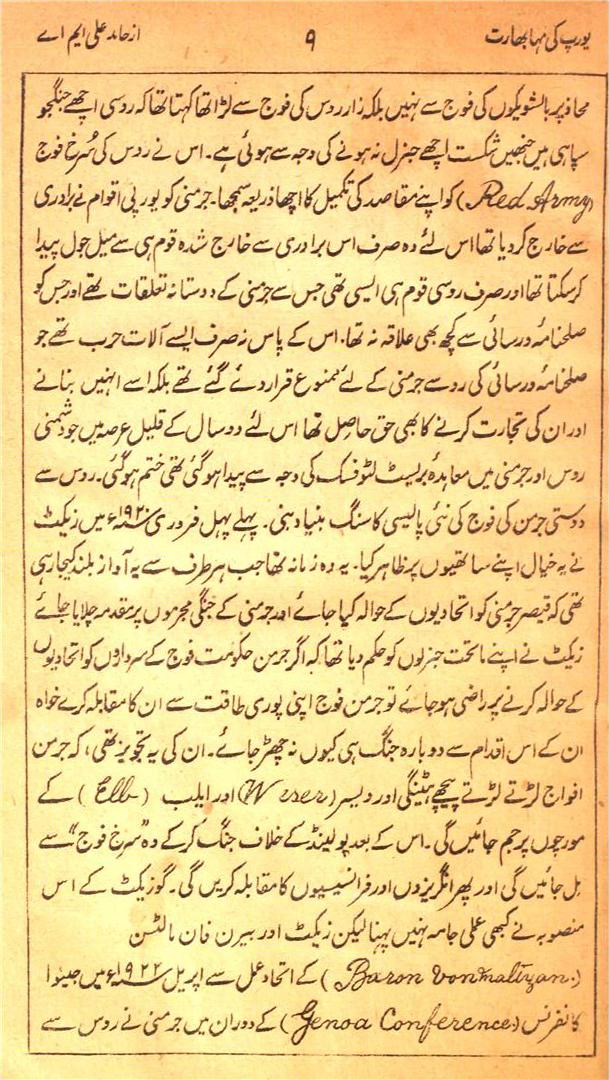 یورپ کی مہا بھارت ۹ از حامد علی ایم اے
محاذ پر بالشویکوں کی فوج سے نہیں بلکہ زار روس کی فوج سے لڑا تھا کہتا تھا کہ روسی اچھے جنگجو
سپاہی ہیں جنھیں شکست اچھے جنرل نہ ہونے کی وجہ سے ہوئی ہے۔ اس نے روس کی سُرخ فوج
(Red Army) کو اپنے مقاصد کی تکمیل کا اچھا ذریعہ سمجھا۔ جرمنی کو یورپی اقوام نے برادری
سے خارج کر دیا تھا اس لئے وہ صرف اس برادری سے خارج شدہ قوم ہی سے میل جول پیدا
کر سکتا تھا اور صرف روسی قوم ہی ایسی تھی جس سے جرمنی کے دوستانہ تعلقات تھے اور جس کو
صلحنامۂ ورسائی سے کچھ بھی علاقہ نہ تھا۔ اس کے پاس نہ صرف ایسے آلات حرب تھے جو
صلحنامۂ ورسائی کی رو سے جرمنی کے لئے ممنوع قرار دئے گئے تھے بلکہ اسے انہیں بنانے
اور ان کی تجارت کرنے کا بھی حق حاصل تھا اس لئے دو سال کے قلیل عرصہ میں جو دشمنی
روس اور جرمنی میں معاہدۂ بریسٹ لٹوفسک کی وجہ سے پیدا ہو گئی تھی ختم ہو گئی۔ روس سے
دوستی جرمن کی فوج کی نئی پالیسی کا سنگ بنیاد بنی۔ پہلے پہل فروری ۱۹۲۰ء میں زیکٹ
نے یہ خیال اپنے ساتھیوں پر ظاہر کیا۔ یہ وہ زمانہ تھا جب ہر طرف سے یہ آواز بلند کیجا رہی
تھی کہ قیصر جرمنی کو اتحادیوں کے حوالہ کیا جائے اور جرمنی کے جنگی مجرموں پر مقدمہ چلایا جائے
زیکٹ نے اپنے ماتحت جنرلوں کو حکم دیا تھا کہ اگر جرمن حکومت فوج کے سرداروں کو اتحادیوں
کے حوالہ کرنے پر راضی ہو جائے تو جرمن فوج اپنی پوری طاقت سے ان کا مقابلہ کرے خواہ
ان کے اس اقدام سے دوبارہ جنگ ہی کیوں نہ چھڑ جائے۔ ان کی یہ تجویز تھی، کہ جرمن
افواج لڑتے لڑتے پیچھے ہٹینگی اور ویسر (Weser) اور ایلب (Elb) کے
مورچوں پر جم جائیں گی۔ اس کے بعد پولینڈ کے خلاف جنگ کر کے وہ "سرخ فوج" سے
مل جائیں گی اور پھر انگریزوں اور فرانسیسیوں کا مقابلہ کریں گی۔ گو زیکٹ کے اس
منصوبہ نے کبھی عملی جامہ نہیں پہنا لیکن زیکٹ اور بیرن فان مالٹسن
(Baron von maltzan.) کے اتحاد عمل سے اپریل ۱۹۲۲ء میں جینوا
کانفرنس (Genoa Conference.) کے دوران میں جرمنی نے روس سے